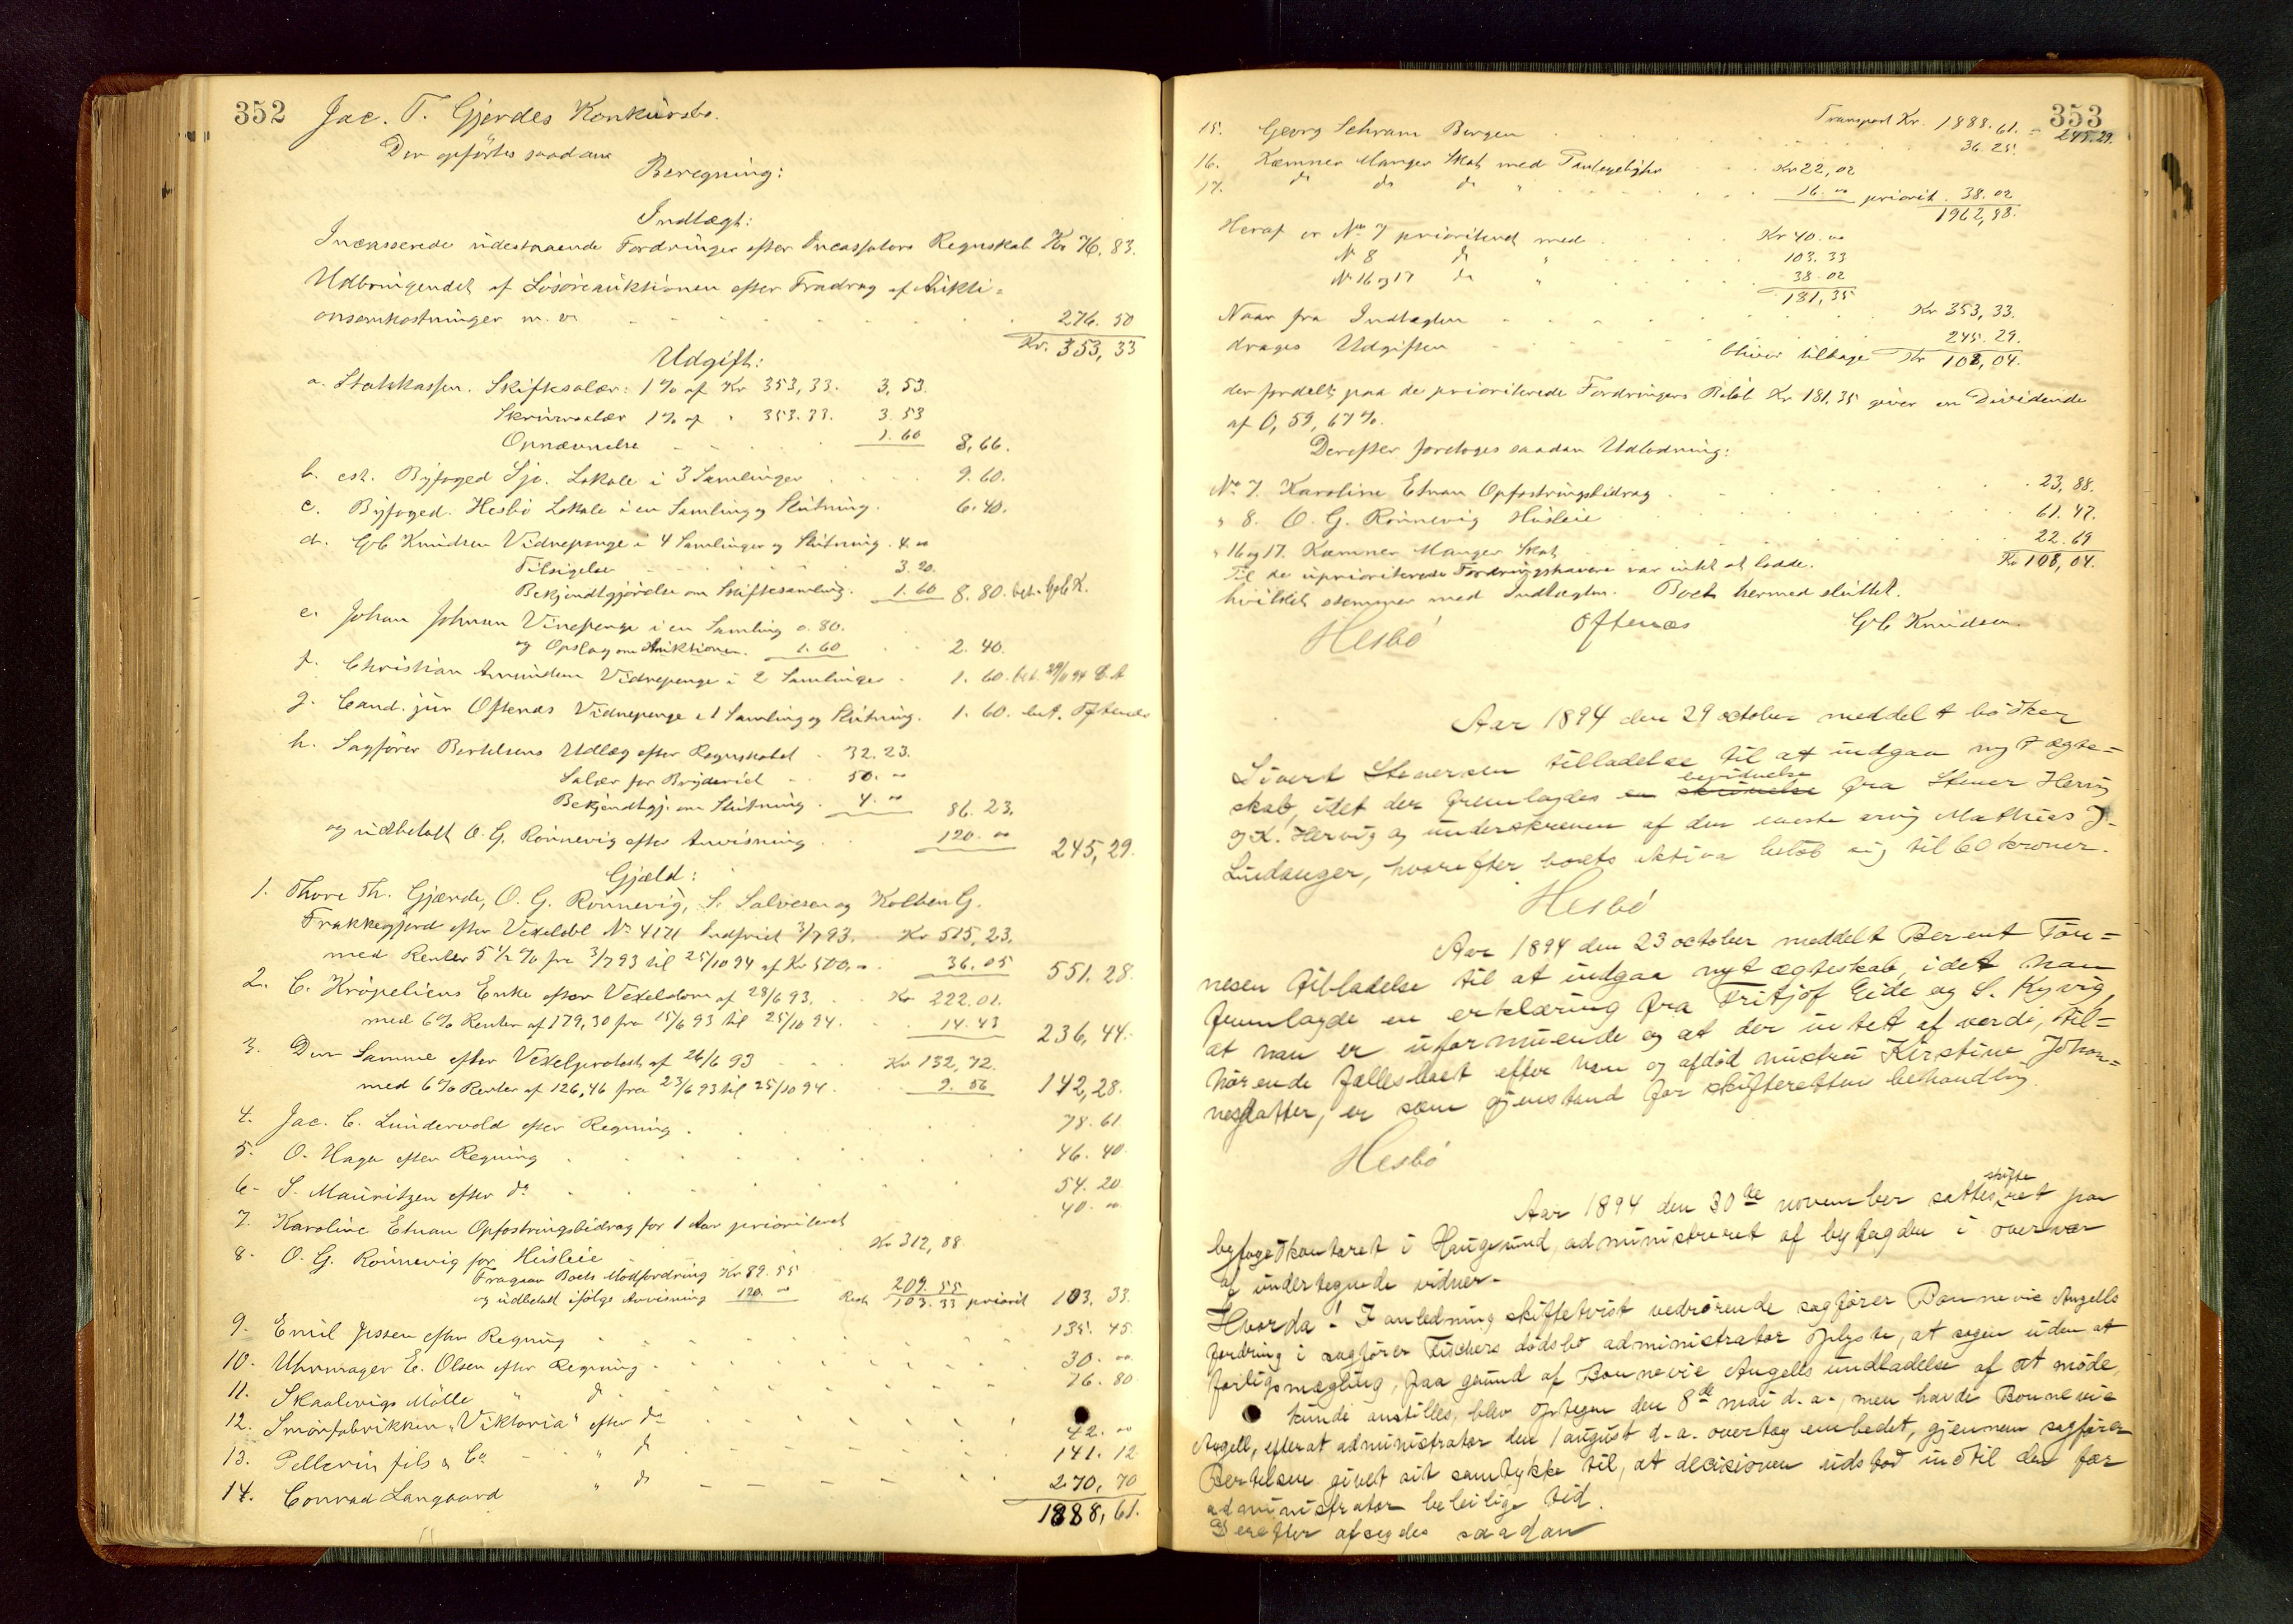 352 Jac. T. Gjerdes Konkursbo.
Der opførtes saadan
Beregning:
Indtægt:
Incasserede udestaaende Fordringer efter Incassators Regnskab Kr 76,83.
Udbringendet af Løsøreauktionen efter Fradrag af Aukti=
onsomkostninger m. v. 276.50
Kr. 353,33
Udgift:
a. Statskassen. Skiftesalær: 1% af Kr 353,33. 3,53.
Skriversalær 1% af " 353.33. 3.53
Opnævnelse 1.60 8,66.
b. cst. Byfoged Lokale i 3 Samlinger 9.60.
c. Byfoged. Hesbø Lokale i en Samling og Slutning. 6.40.
d. Knudsen Vidnepenge i 4 Samlinger og Slutning. 4.00
Tilsigelse 3.20.
Bekjendtgjørelse om Skiftesamling. 1.60 8.80. bet.
e. Johan Johnsen Vinepenge i en Samling 0.80.
og Opslag om Auktionen. 1.60 2.40.
f. Christian Amundsen Vidnepenge i 2 Samlinger 1.60. bet.
g. Cand. jur Oftenæs Vidnepenge i 1 Samling og Slutning. 1.60. bet. Oftenæs
h. Sagfører Bertelsens Udlæg efter Regnskabet 32.23.
Salær for Bryderiet 50.00
Bekjendtgj. om Slutning. 4.00 86.23.
og udbetalt O. G. Rønnevig efter Anvisning 120.00 245,29.
Gjæld:
1. Thore Th. Gjærde, O. G. Rønnevig, S. Salvesen og Kolben G.
Frakkegjerd efter Vexelobl No 4171 Indfriet 3/7 93. Kr 515,23.
med Renter 5 1/2 % fra 3/7 93 til 25/10 94 af Kr 500.00 36.05 551.28.
2. C. Krøpeliens Enke efter Vexeldom af 28/6 93. Kr 222.01.
med 6% Renter af 179,30 fra 15/6 93 til 25/10 94. 14.43 236,44.
3. Den Samme efter Vexelprotest af 26/6 93 Kr 132,72.
med 6% Renter af 126,46 fra 23/6 93 til 25/10 94. 9.56 142,28.
4. Jac. C. Lundervold efter Regning. 78.61.
5. O. Haga efter Regning 46.40.
6. S. Mauritzen efter do 54.20
7. Karoline Etnan Opfostringsbidrag for 1 Aar prioriteret 40.00
8. O. G. Rønnevig for Husleie Kr 312,88
Fragaar Boets Modfordring Kr 89.55
og udbetalt ifølge Anvisning 120.00 209.55
Rest 103.33 priorit 103.33.
9. Emil Jessen efter Regning 135.45.
10. Uhrmager E. Olsen efter Regning 30.00
11. Skaalevigs Mølle " do 76.80
12. Smørfabrikken "Viktoria" efter do 42.00
13. Pellerin fils & Co " do 141.12
14. Conrad Langaard " do 270,70
1888,61.
353
Transport Kr. 1888.61. = 245.29.
15. Georg Schram Bergen 36.25.
16. Kæmner Manger Skat med Pantegebyhr Kr 22,02
17. do do do " 16.00 priorit. 38.02
1962,88.
Heraf er No 7 prioriteret med Kr 40.00
N 8 do " 103.33
No 16 og 17 do " 38.02
181,35
Naar fra Indtægten Kr 353,33.
drages Udgiften 245.29.
bliver tilbage Kr 108,04.
der fordelt paa de prioriterede Fordringers Beløb Kr 181.35 giver en Dividende
af 0,59,67%.
Derefter foretoges saadan Udlodning:
No 7. Karoline Etnan Opfostringsbidrag 23,88.
" 8. O. G. Rønnevig Husleie 61.47.
" 16 og 17. Kæmner Manger Skat 22.69
Til de uprioriterede Fordringshavere var intet at lodde. Kr 108,04.
hvilket stemmer med Indtægten. Boet hermed sluttet.
Hesbø Oftenæs Knudsen.
Aar 1894 den 29 october meddelt bødker
Sivert Steversen tilladelse til at indgaa nyt ægte=
skab, idet der fremlagdes en skrivelse bevidnelse fra Stener Hervig
og K. Hervig og underskreven af den eneste arving Mathias J.
Lindanger, hvorefter boets aktiva beløb sig til 60 kroner.
Hesbø
Aar 1894 den 23 october meddelt Berent Tøn=
nesen tilladelse til at indgaa nyt ægteskab, idet han
fremlagde en erklæring fra Fritjof Eide og S. Kyvig,
at han er uformuende og at der intet af værdi, til=
hørende fællesboet efter ham og afdød hustru Kirstine Johan=
nesdatter, er som gjenstand for skifterettens behandling.
Hesbø
Aar 1894 den 30te november sattes skifteret paa
byfogedkontoret i Haugesund, administreret af byfogden i overvær
af undertegnede vidner.
Hvorda: I anledning skiftetvist vedrørende sagfører Bonnevie Angells
fordring i sagfører Fischers dødsbo administrator oplyste, at sagen uden at
forligsmægling, paa grund af Bonnevie Angells undladelse af at møde,
kunde anstilles, blev optagen den 8de mai d. a., men havde Bonnevie
Angell, efterat administrator den 1 august d. a. overtog embedet, gjennem sagfører
Bertelsen givet sit samtykke til, at decisionen udstod indtil den for
administrator beleilige tid.
Derefter afsagdes saadan